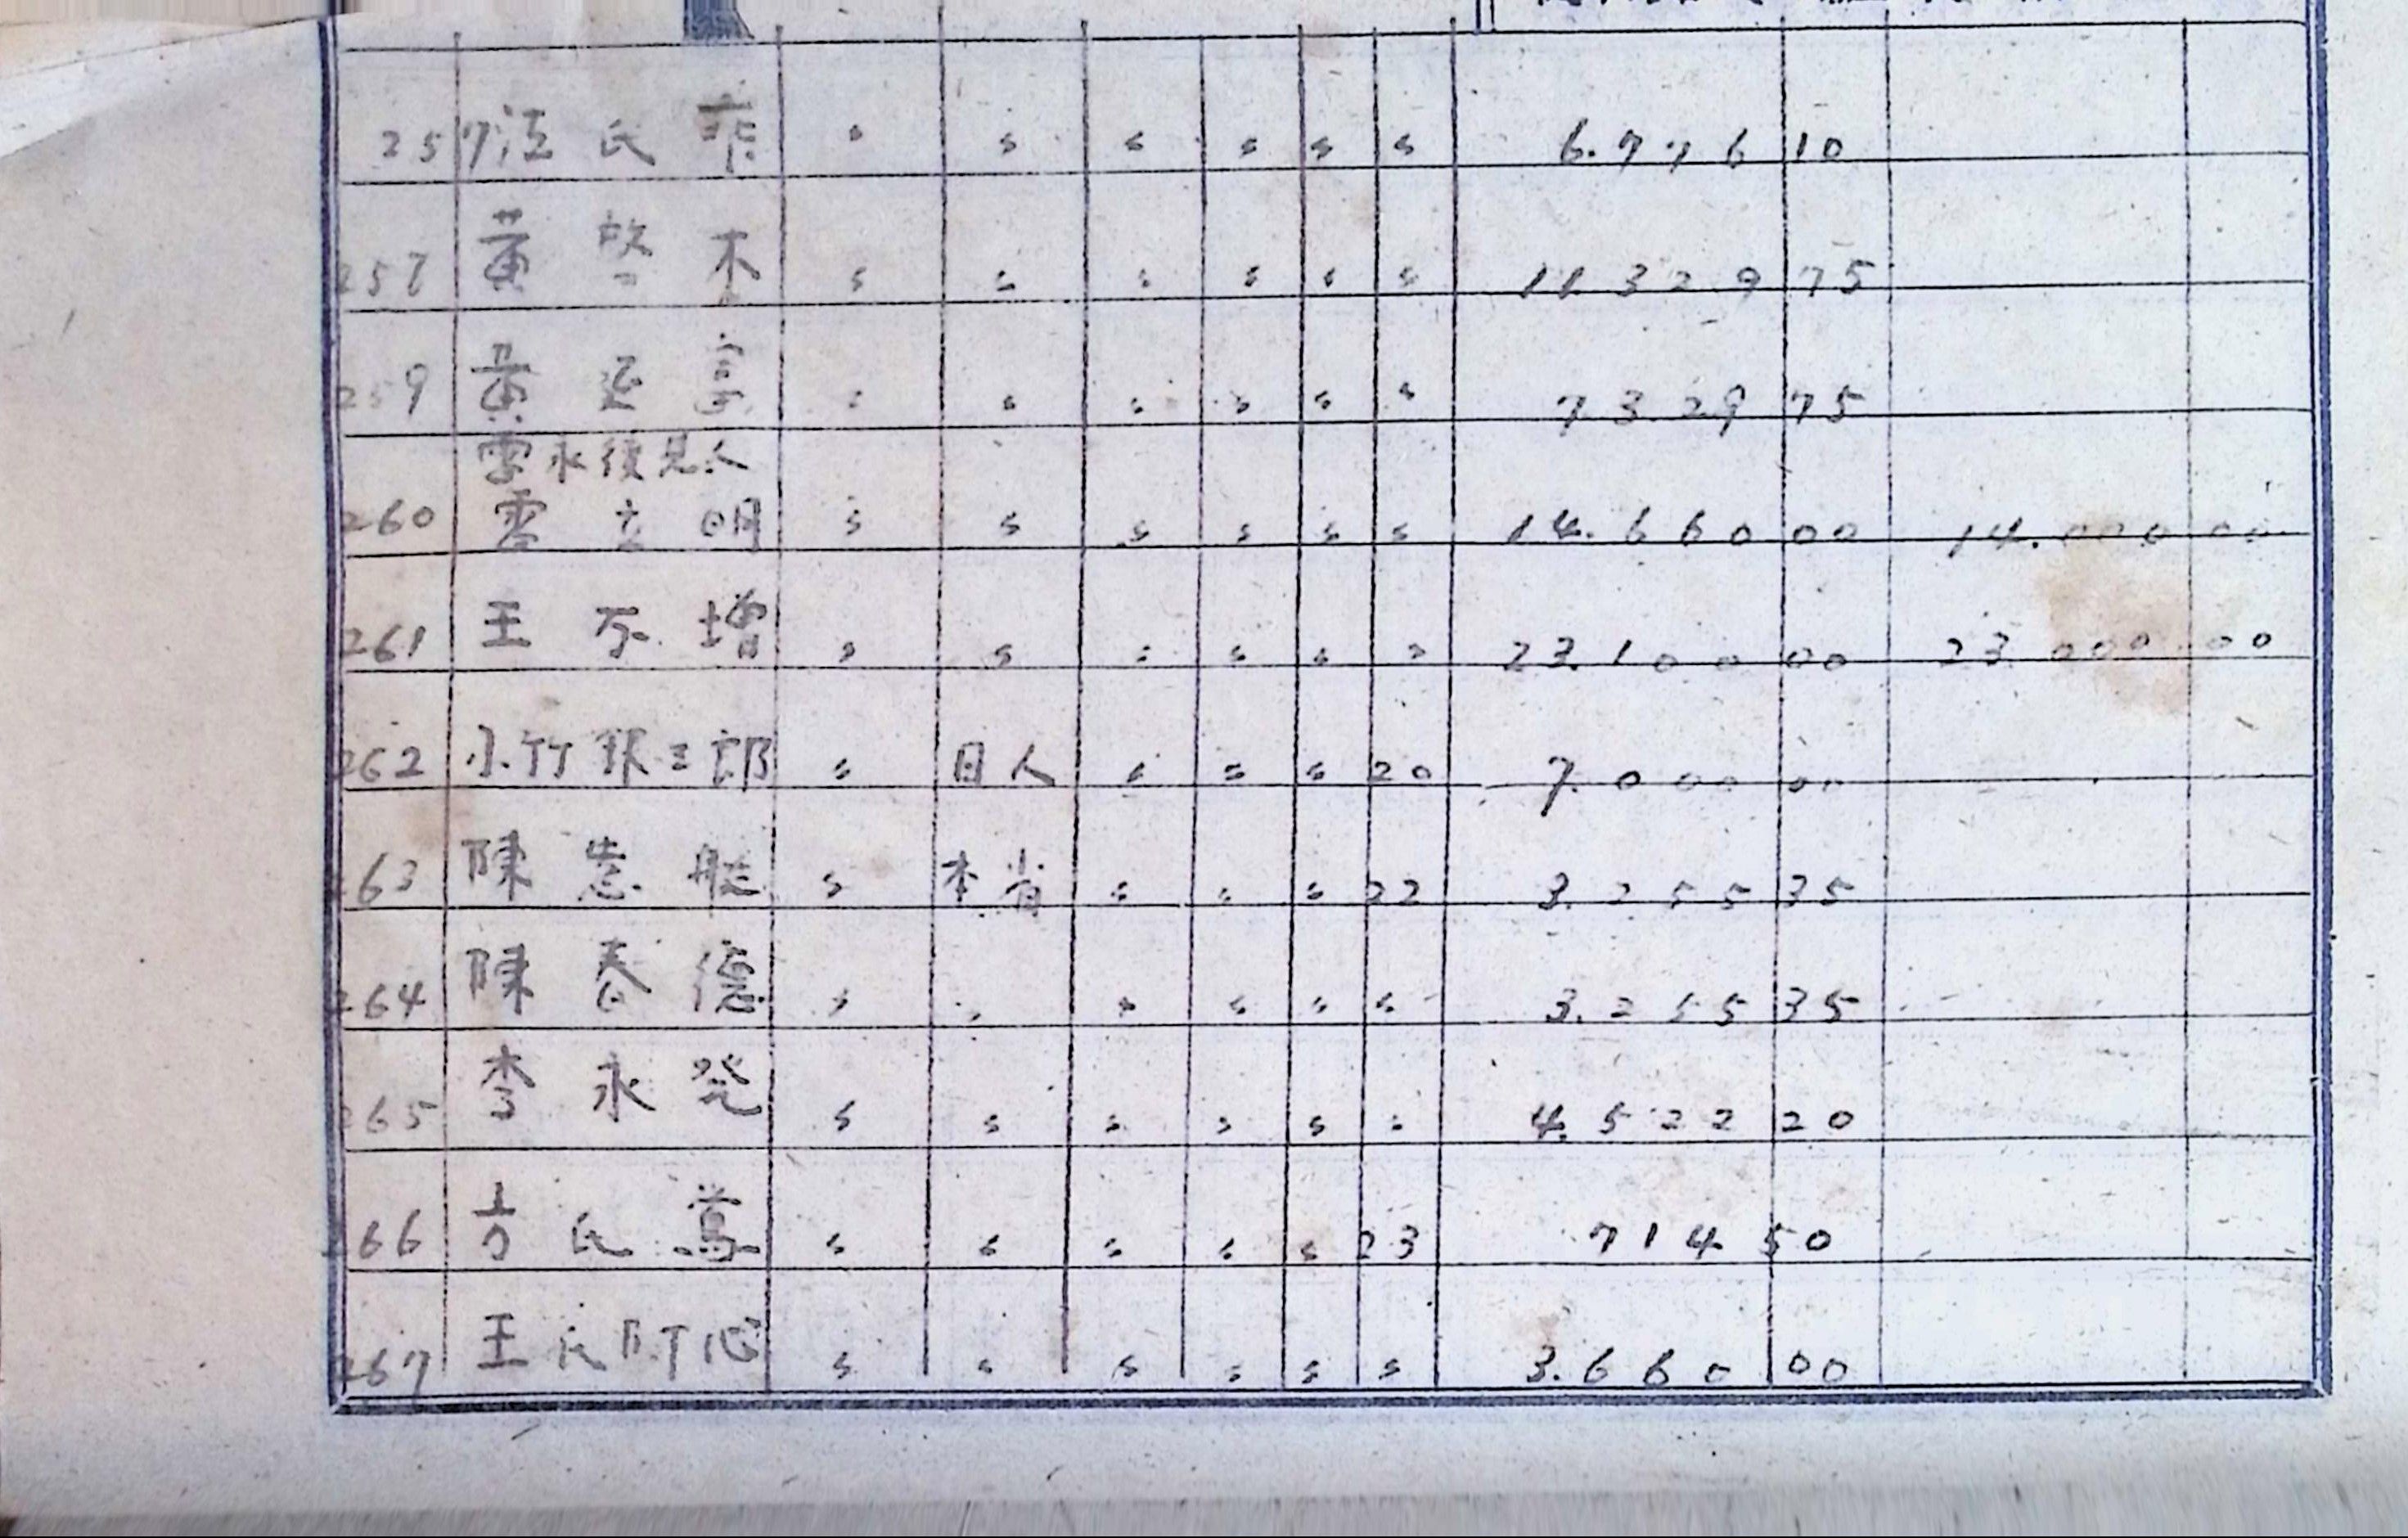 257 汪氏 〃 〃 〃 〃 〃 〃 6.776 10
257 黃啓木 〃 〃 〃 〃 〃 〃 11.329 75
259 黃 〃 〃 〃 〃 〃 〃 7.329 75
雷永後見人
260 雷玄明 〃 〃 〃 〃 〃 〃 14.660 00 14.000 00
261 王 增 〃 〃 〃 〃 〃 〃 23.100 00 23.000 00
262 小竹 三郎 〃 日人 〃 〃 〃 20 7.000 00
263 陳 〃 本省 〃 〃 〃 22 3.255 35
264 陳春德 〃 〃 〃 〃 〃 〃 3.255 35
265 李永発 〃 〃 〃 〃 〃 〃 4.522 20
266 方氏鴬 〃 〃 〃 〃 〃 23 714 50
267 王氏阿心 〃 〃 〃 〃 〃 〃 3.660 00